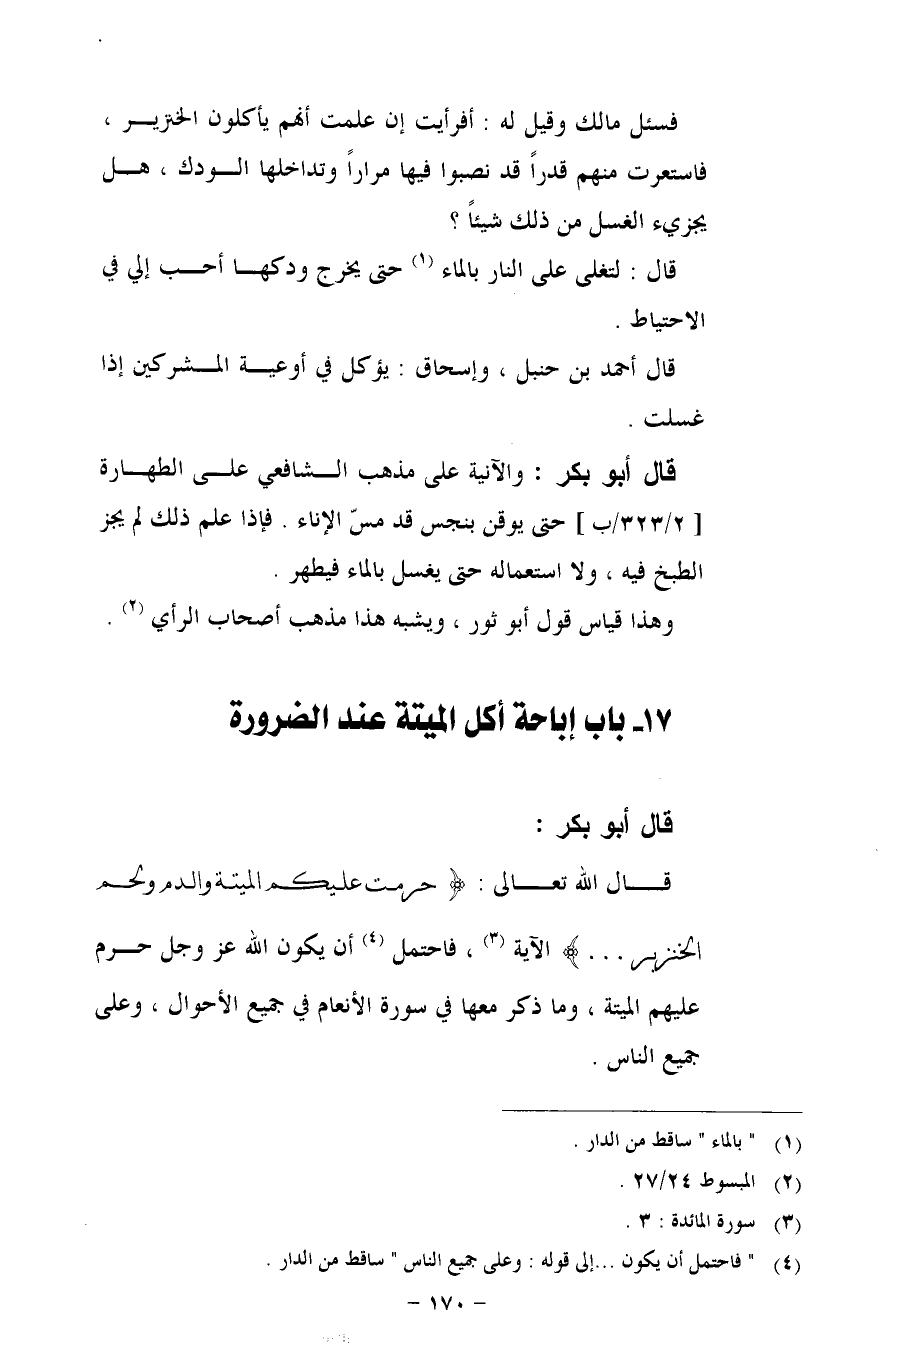 فسئل مالك وقيل له : أفرأيت إن علمت أنهم يأكلون الخنزيـــر ،
فاستعرت منهم قدراً قد نصبوا فيها مراراً وتداخلها الـــودك ، هـــل
يجزيء الغسل من ذلك شيئاً ؟
قال : لتغلى على النار بالماء (١) حتى يخرج ودكهـــا أحـــب إلي في
الاحتياط .
قال أحمد بن حنبل ، وإسحاق : يؤكل في أوعيـــة المـــشركين إذا
غسلت .
قال أبو بكر : والآنية على مذهب الـــشافعي علـــى الطهـــارة
[ ٣٢٣/٢/ب ] حتى يوقن بنجس قد مسّ الإناء . فإذا علم ذلك لم يجز
الطبخ فيه ، ولا استعماله حتى يغسل بالماء فيطهر .
وهذا قياس قول أبو ثور ، ويشبه هذا مذهب أصحاب الرأي (٢) .
١٧ـ باب إباحة أكل الميتة عند الضرورة
قال أبو بكر :
قـــال الله تعـــالى : ﴿ حرمت عليكم الميتة والدم ولحم
الخنزير ... ﴾ الآية (٣) ، فاحتمل (٤) أن يكون الله عز وجل حـــرم
عليهم الميتة ، وما ذكر معها في سورة الأنعام في جميع الأحوال ، وعلى
جميع الناس .
(١) " بالماء " ساقط من الدار .
(٢) المبسوط ٢٧/٢٤ .
(٣) سورة المائدة : ٣ .
(٤) " فاحتمل أن يكون ...إلى قوله : وعلى جميع الناس " ساقط من الدار .
– ١٧٠ –